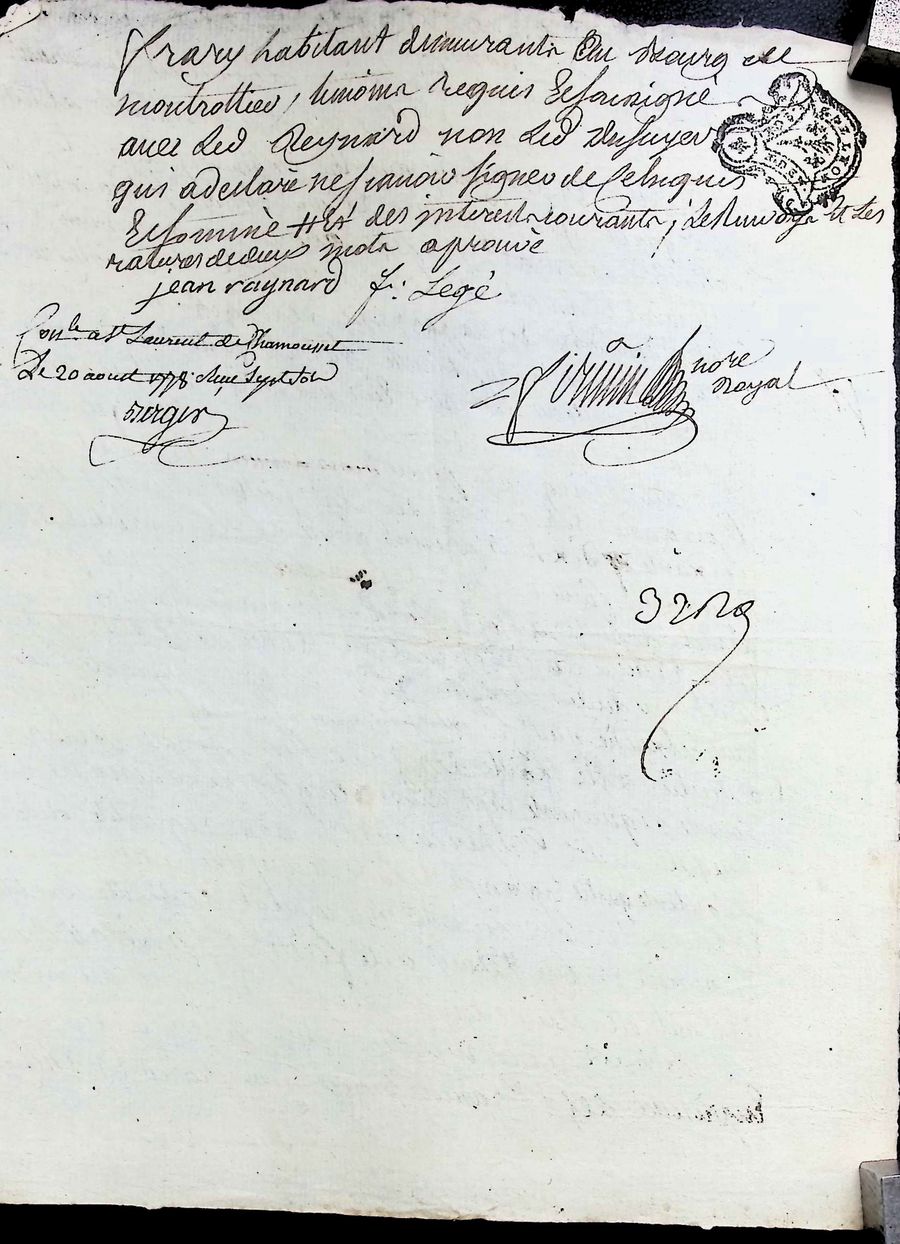 habitant demeurants au Bourg de
montrottier, temoins requis & soussigné
avec Led Reynard non Led
qui a declaré ne scavoir signer de ce enquis
& sommé # & des interests courants, Le renvoye et Les
ratures de deux mots aprouvé
jean raynard f: Legé
Con.lé a St Laurent de Chamousset
Le 20 aout 1778
Berger
nore
Royal